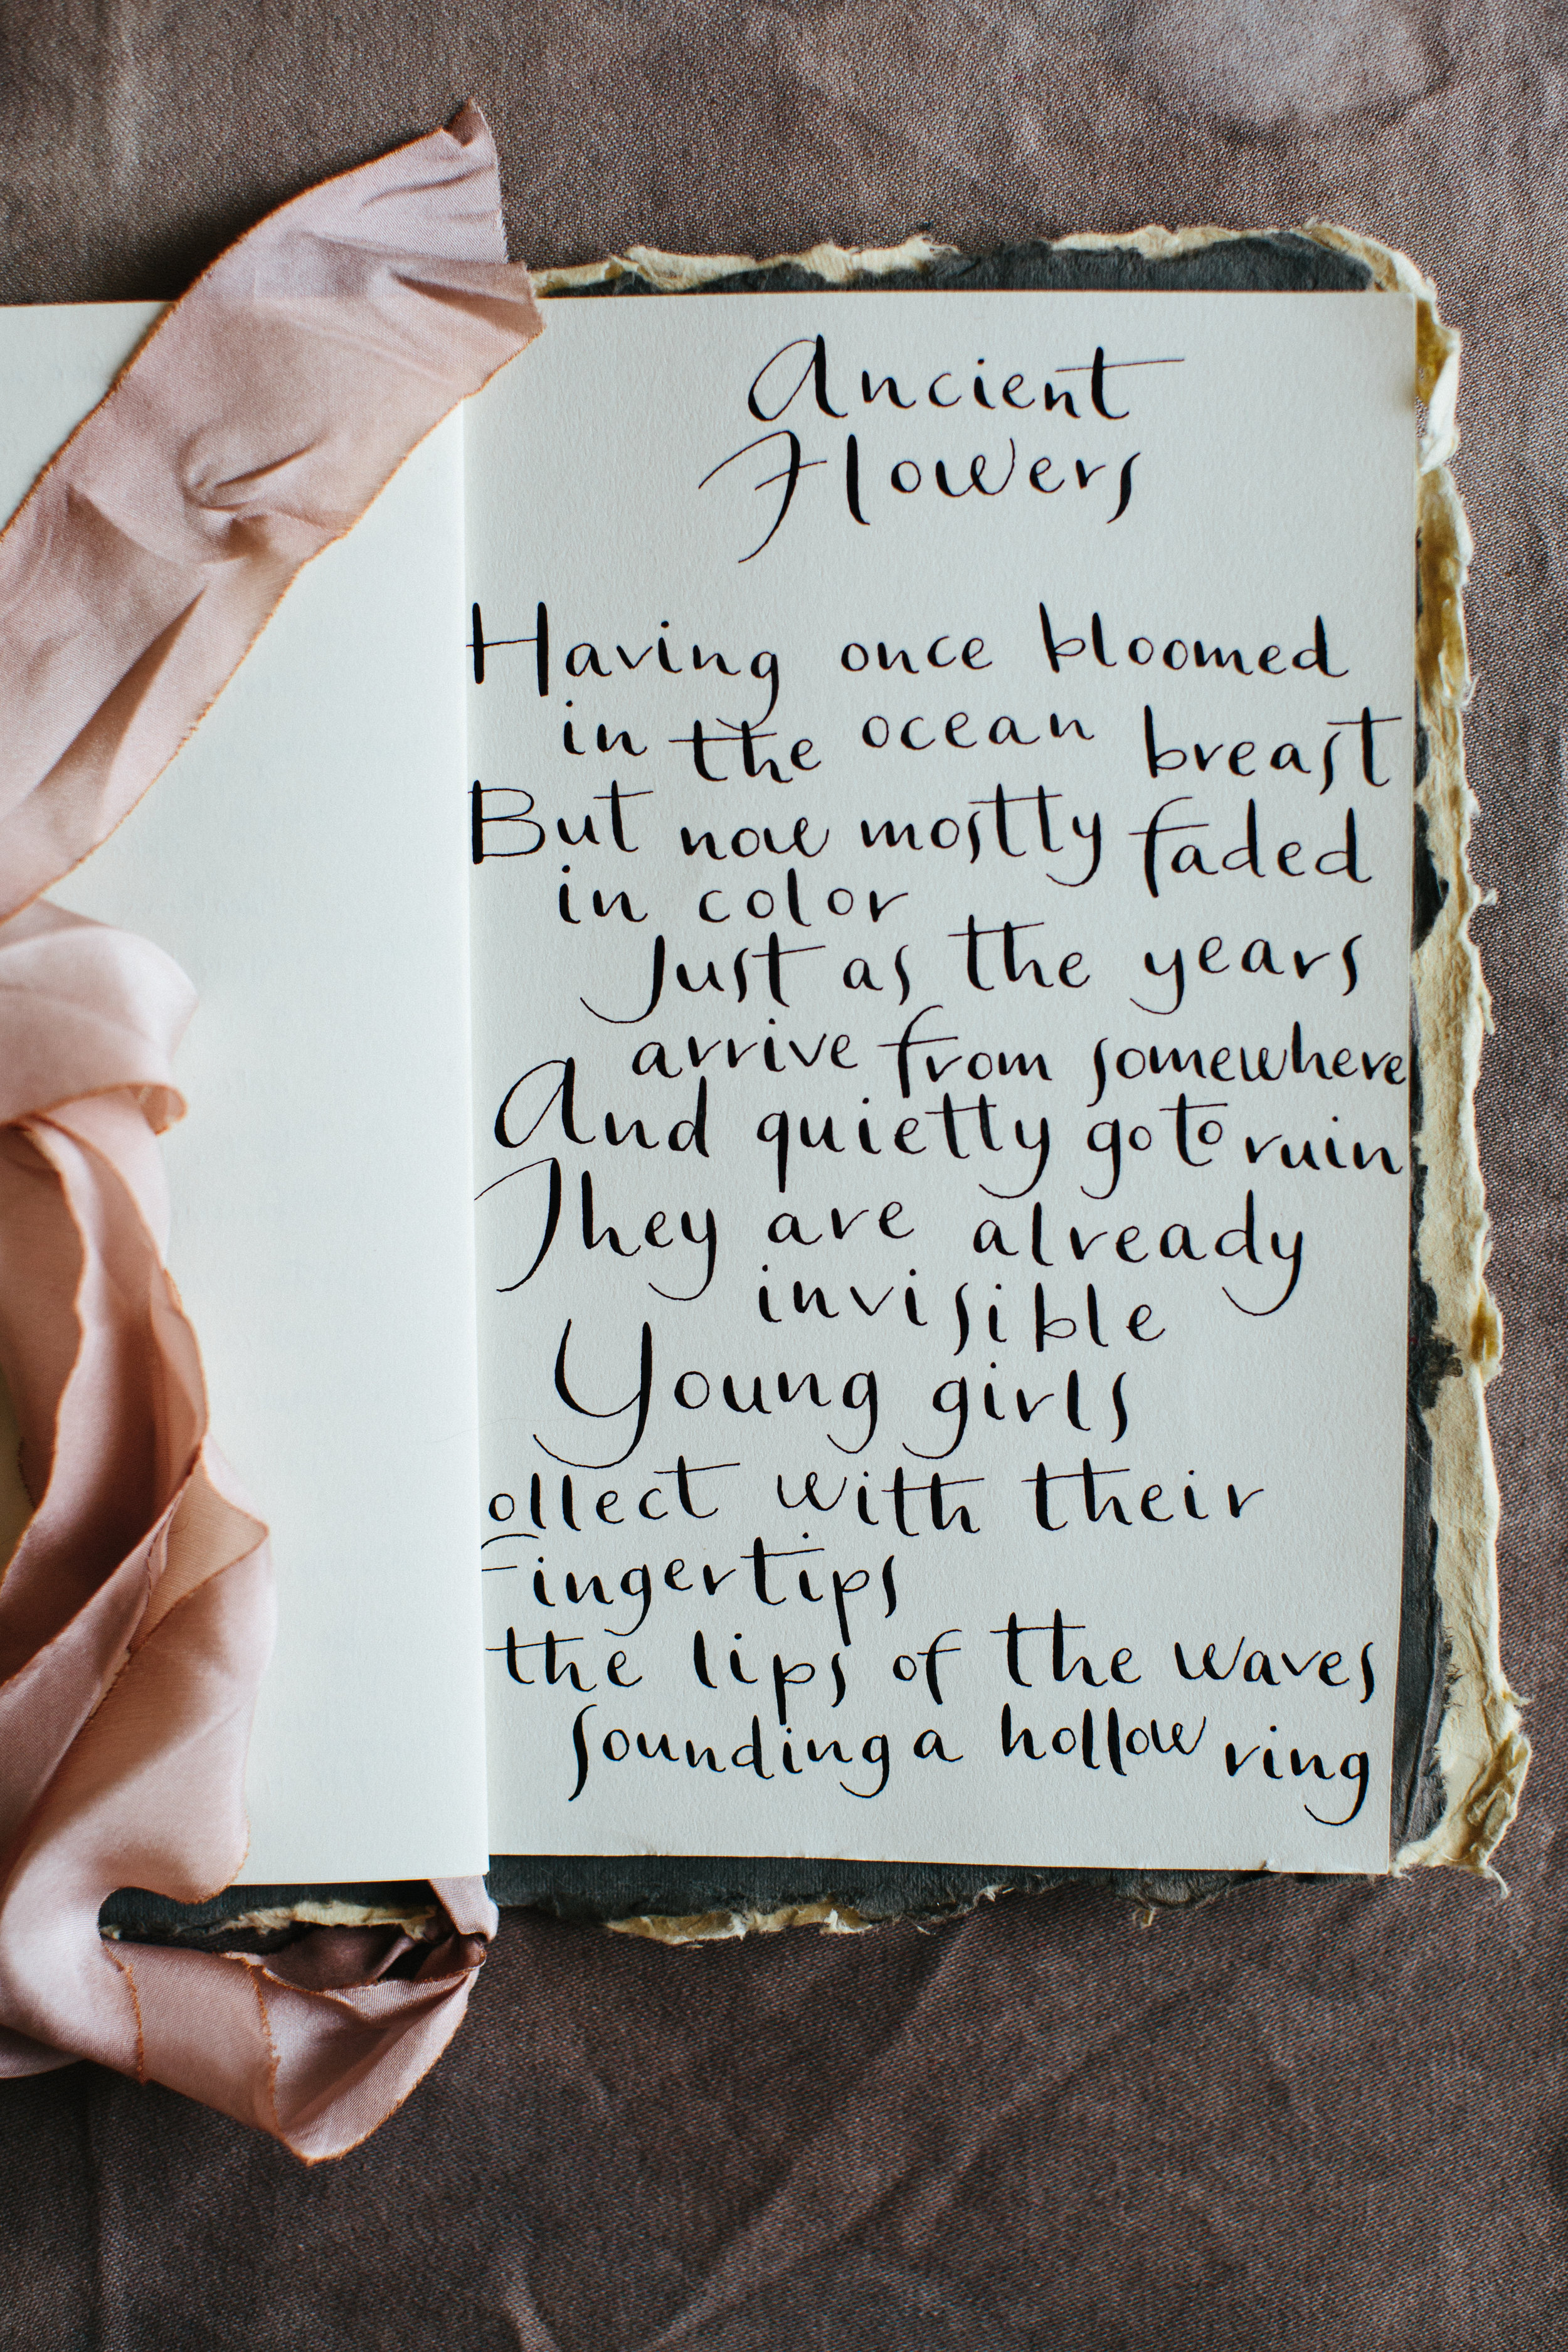 Ancient
Flowers
Having once bloomed
in the ocean breast
But now mostly faded
in color
Just as the years
arrive from somewhere
And quietly go to ruin
They are already
invisible
Young girls
ollect with their
Fingertips
the lips of the waves
Sounding a hollow ring